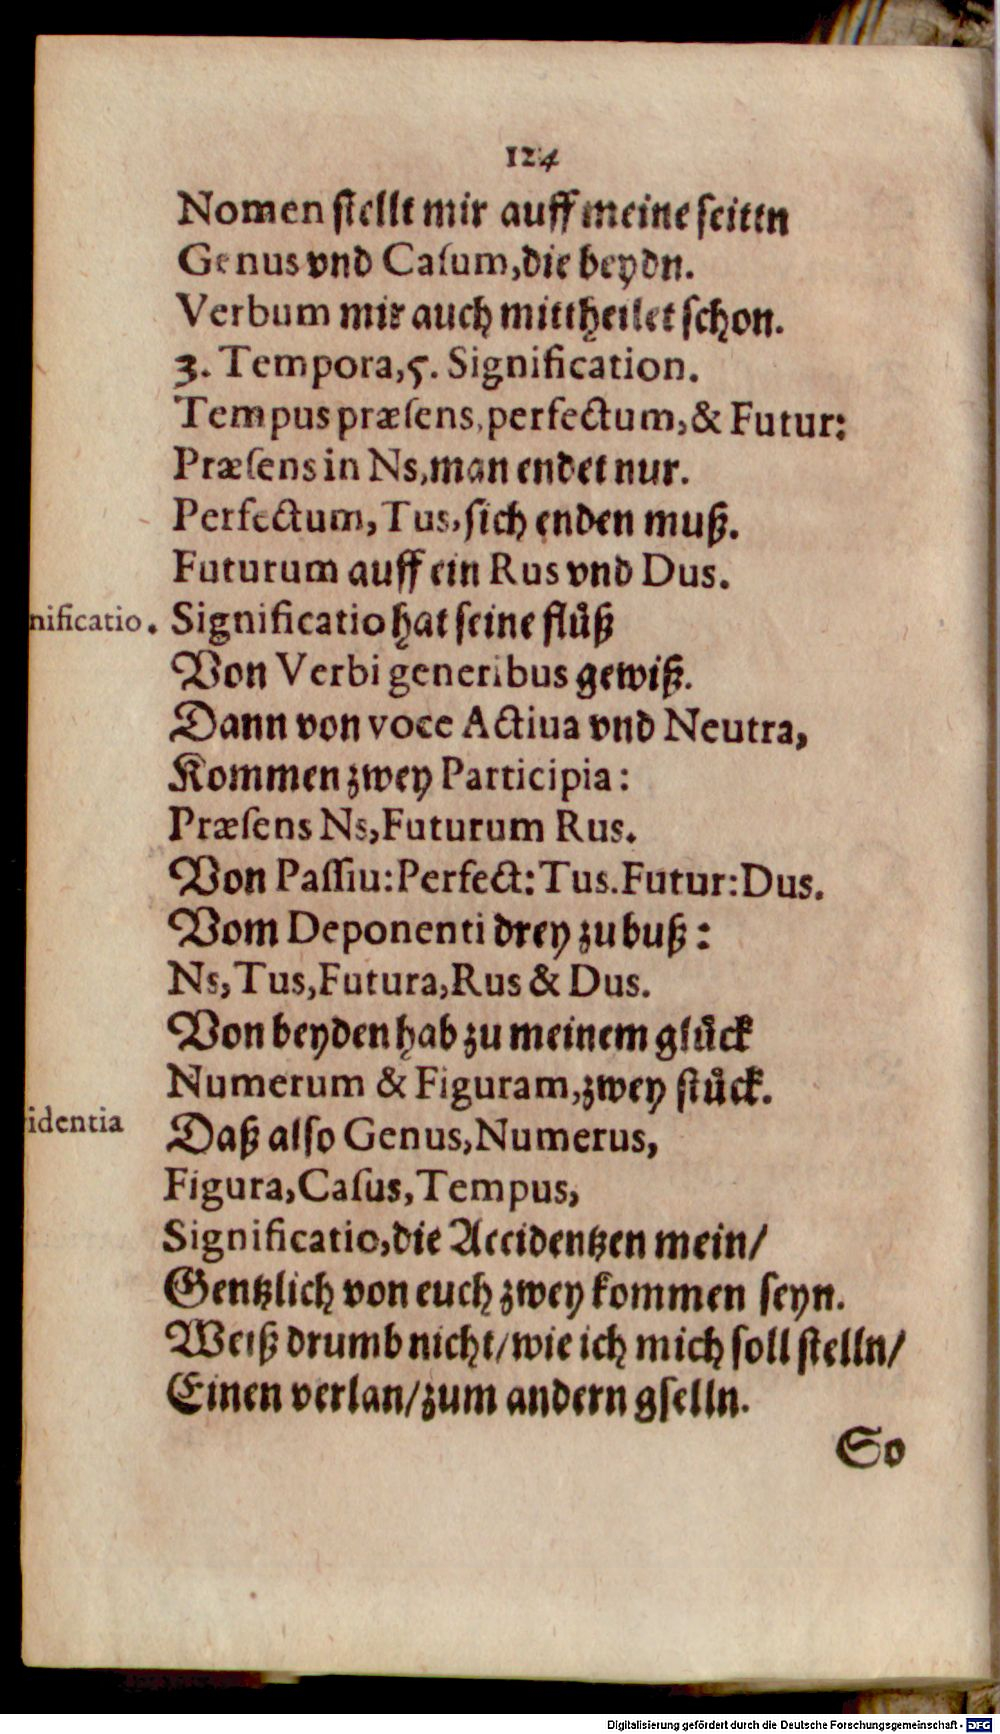 124
Nomen ſtellt mir auff meine ſeittn
Genus vnd Caſum, die beydn.
Verbum mir auch mittheilet ſchon.
3. Tempora, 5. Signification.
Tempus præſens, perfectum, & Futur:
Præſens in Ns, man endet nur.
Perfectum, Tus, ſich enden muß.
Futurum auff ein Rus vnd Dus.
nificatio. Significatio hat ſeine flůß
Von Verbi generibus gewiß.
Dann von voce Actiua vnd Neutra,
Kommen zwey Participia:
Præſens Ns, Futurum Rus.
Von Paſſiu: Perfect: Tus. Futur: Dus.
Vom Deponenti drey zu buß:
Ns, Tus, Futura, Rus & Dus.
Von beyden hab zu meinem glůck
Numerum & Figuram, zwey ſtůck.
identia Daß alſo Genus, Numerus,
Figura, Caſus, Tempus,
Significatio, die Accidentzen mein/
Gentzlich von euch zwey kommen ſeyn.
Weiß drumb nicht/ wie ich mich ſoll ſtelln/
Einen verlan/ zum andern gſelln.
So
Digitalisierung gefördert durch die Deutsche Forschungsgemeinschaft - DFG